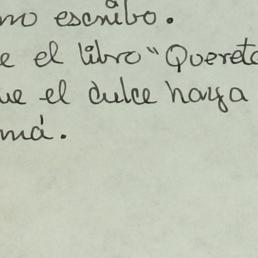 mo escribo.
e el libro "Quereta
ue el dulce haya
má.